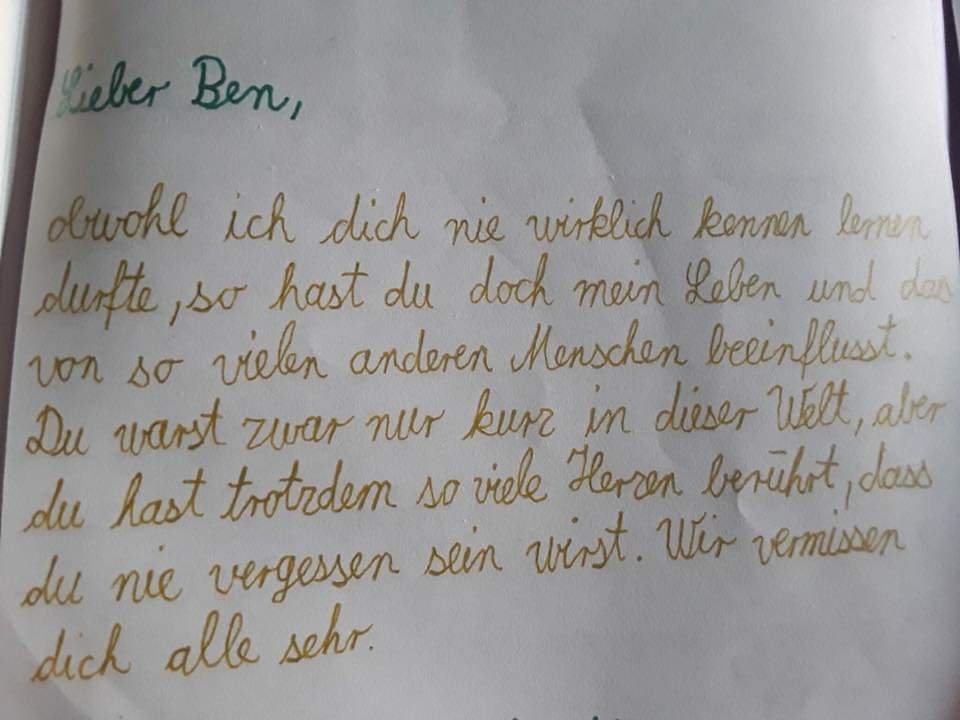 Lieber Ben,
obwohl ich dich nie wirklich kennen lernen
durfte, so hast du doch mein Leben und das
von so vielen anderen Menschen beeinflusst.
Du warst zwar nur kurz in dieser Welt, aber
du hast trotzdem so viele Herzen berührt, dass
du nie vergessen sein wirst. Wir vermissen
dich alle sehr.